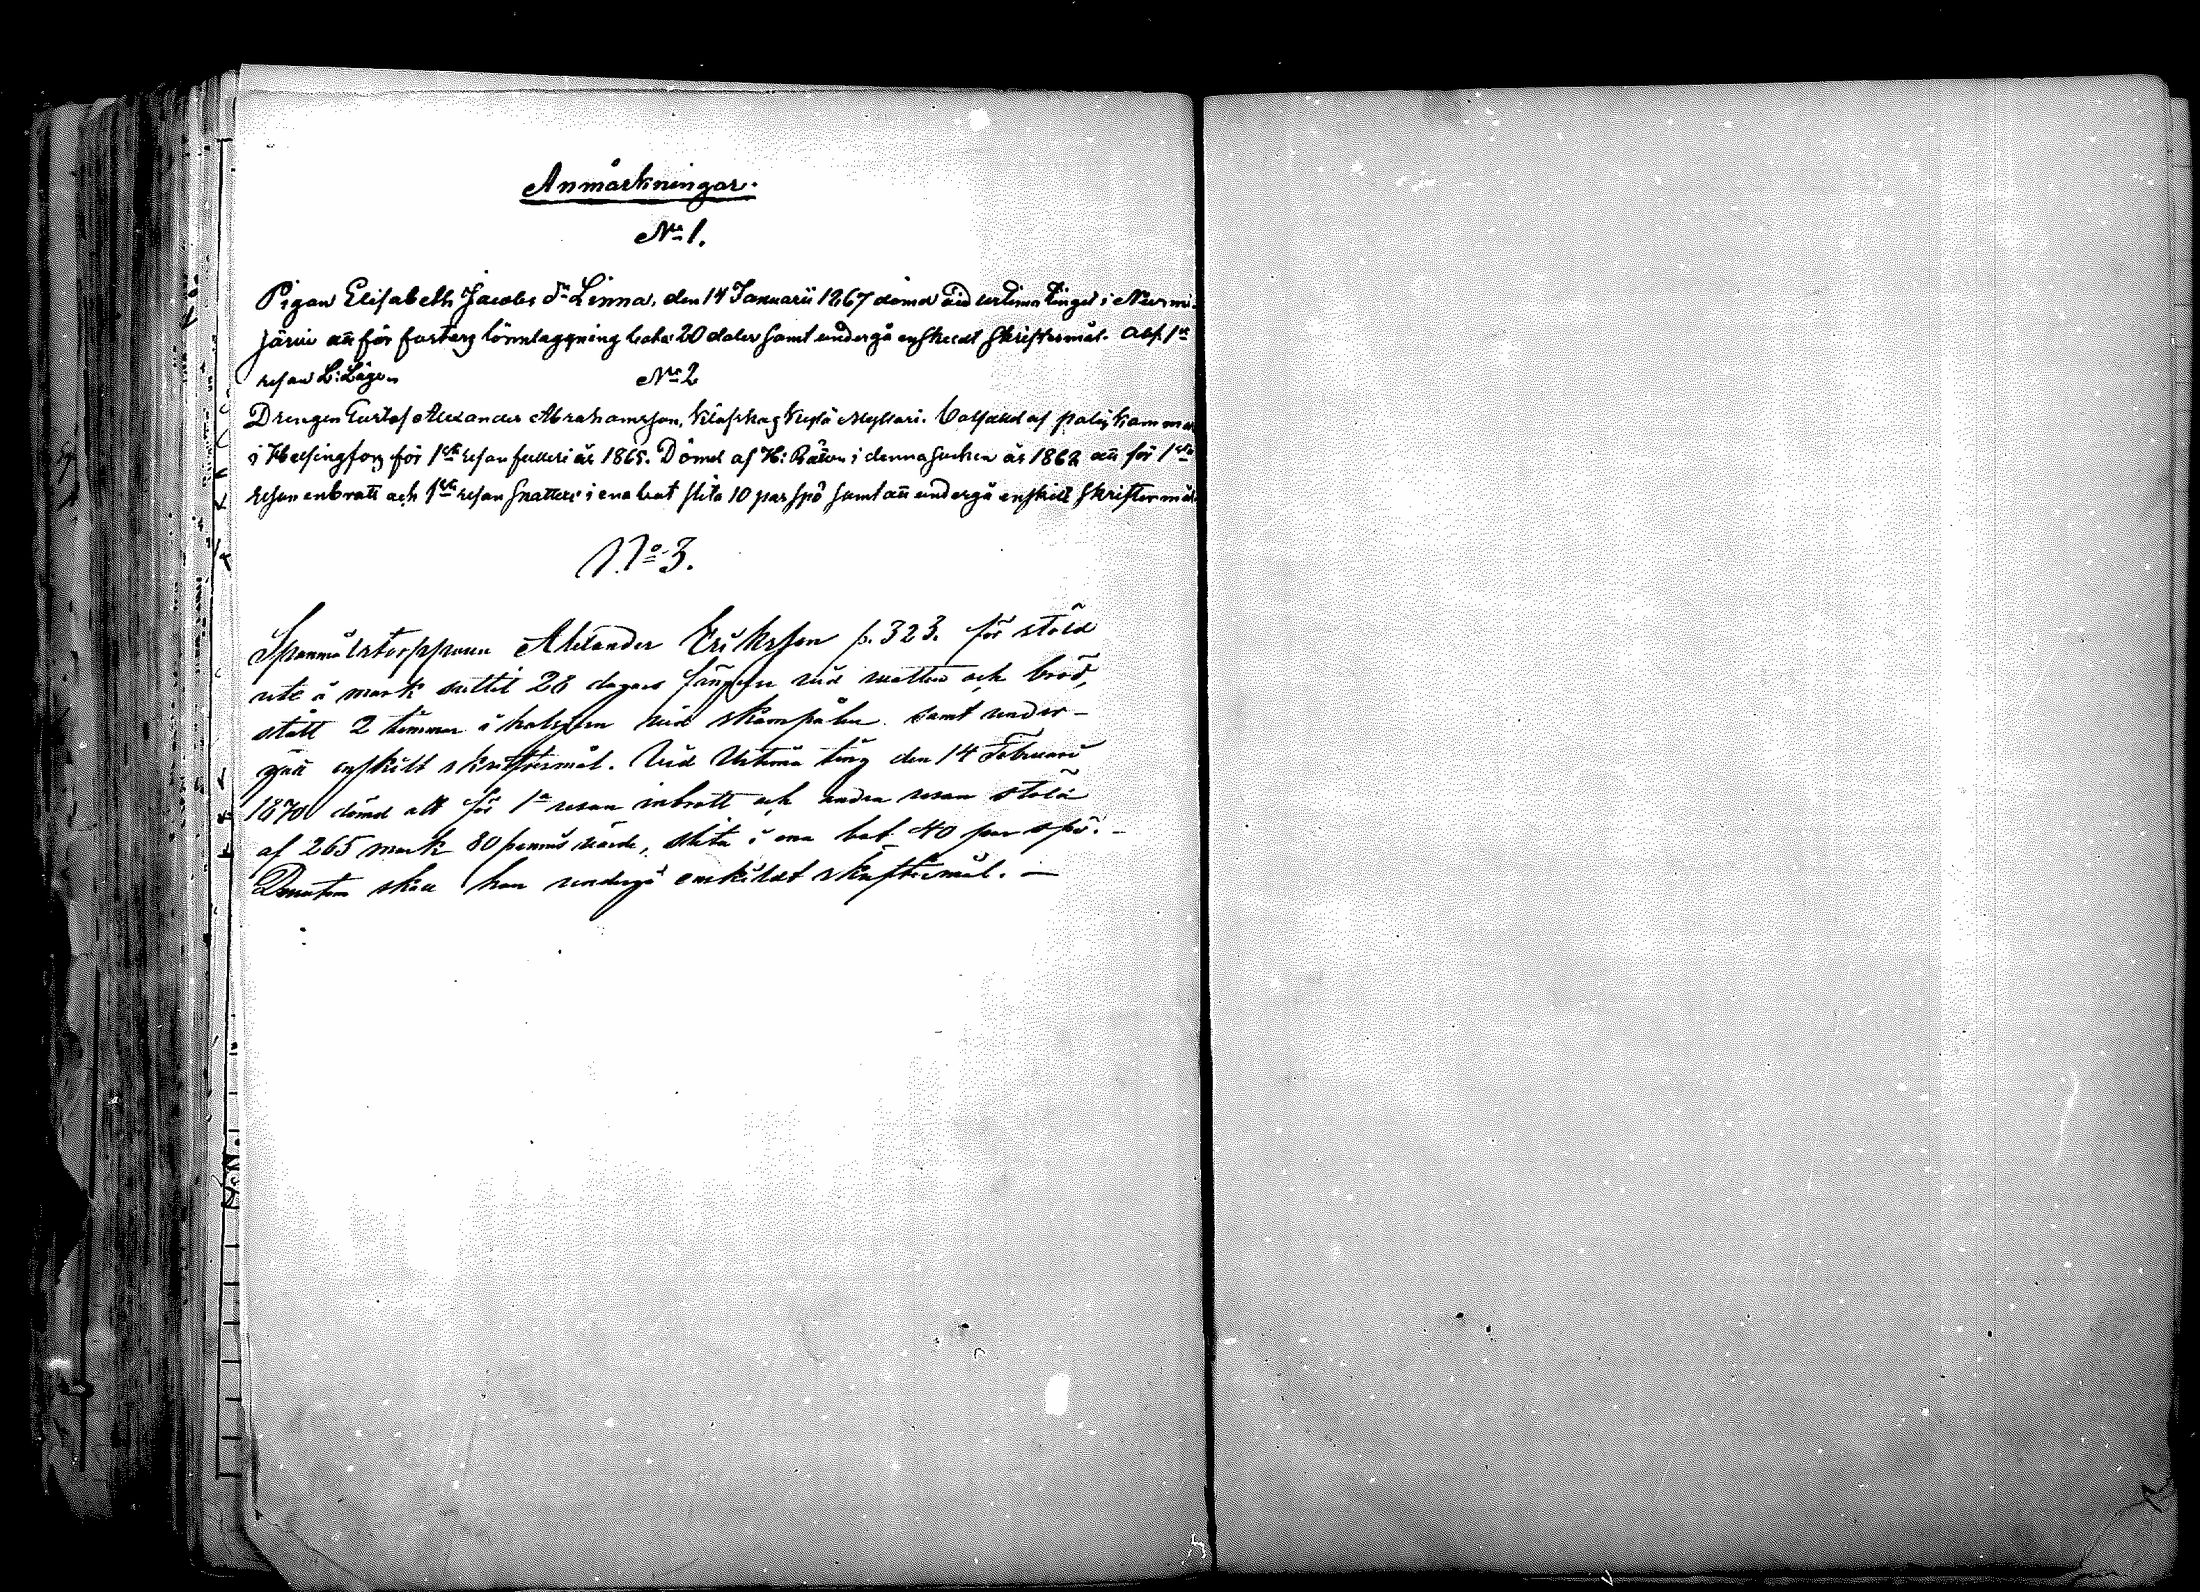 Anmärkningar.
No 1.
Pigan Elisabeth Jacobs dr Linna, den 14 Januarii 1867 dömd vid urtima tinget i Nurmi-
järvi att för fosters lönnläggning böta 20 daler samt undergå enskildt skriftermål. Abs. 1sta
resan L: Läger
No 2
Drengen Gustaf Alexander Abrahamsson, Klafskog Kylä Myllari. Botfälld af poliskammar
i Helsingfors för 1sta resan fylleri år 1865. Dömd af H: Rätten i denna socken år 1862 att för 1sta
resan inbrott och 1sta resan snatteri i ena bot slita 10 par spö samt att undergå enskilt skriftermål
No 3.
Alexander Eriksson p. 323. för stöld
ute å mark suttit 28 dagars fängelse vid vatten och bröd,
stått 2 timmar i halsjern vid skampålen samt under-
gått enskilt skriftermål. Vid Urtima ting den 14 Februari
1870 dömd att för 1a resan inbrott och andra resan stöld
af 265 mark 80 pennis värde, slita i ena bot 40 par spö. -
Dessutom skall han undergå enskildt skriftermål. —